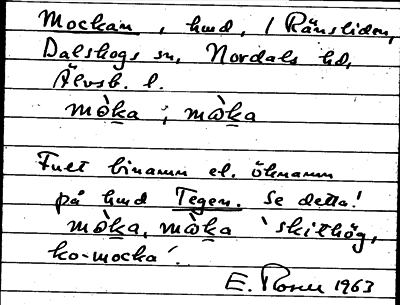 Mockan, hmd, i Ränsliden,
Dalskogs sn, Nordals hd,
Älvsb. l.
mòka ; mòka
Fult binamn el. öknamn
på hmd Tegen. Se detta!
mòka, mòka 'skithög,
ko-mocka'.
E. 1963